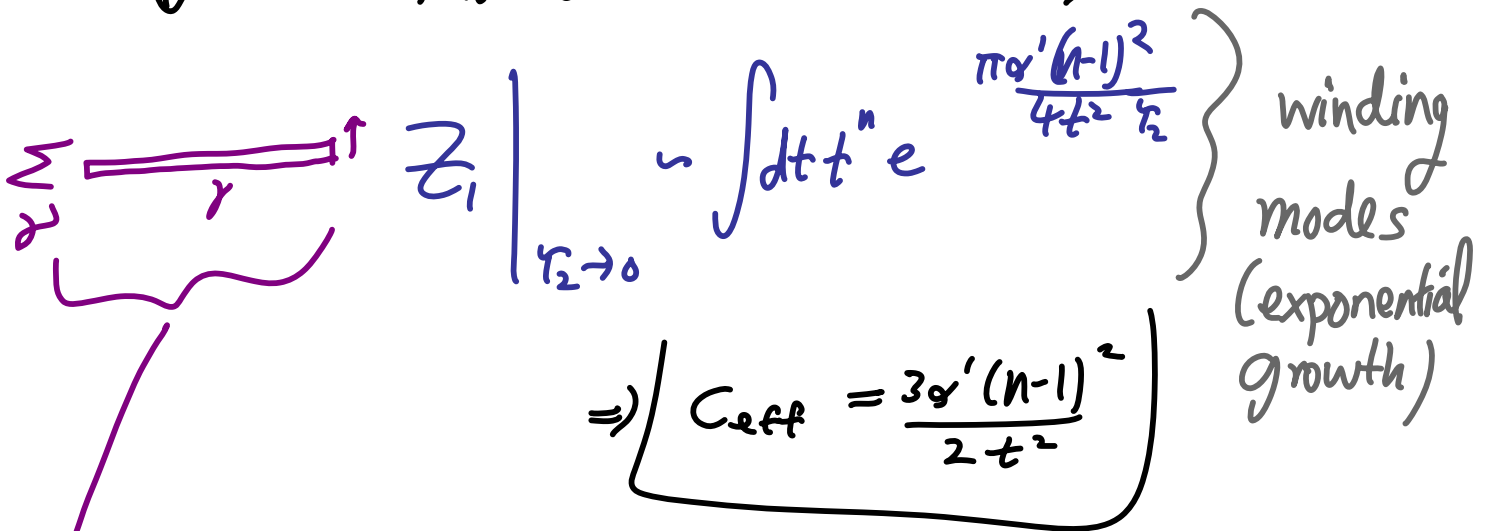 Σ γ γ
Z_1 |_{τ_2→0} ~ ∫dt t^n e^{πα'(n-1)^2 / 4t^2 τ_2}
winding
modes
(exponential
growth)
⇒ C_eff = 3α'(n-1)^2 / 2t^2